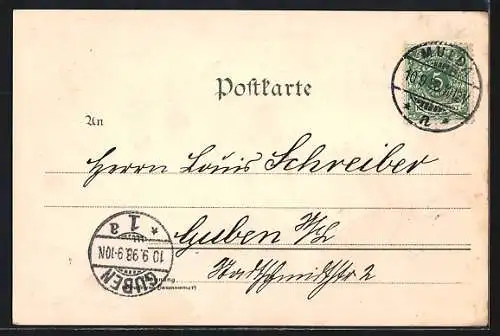 Postkarte
An
Herrn Louis Schreiber
Guben N/L
Stadtschmidtstr 2
10.9.98.9-10N.
* 1 a *
GUBEN
5
* a *